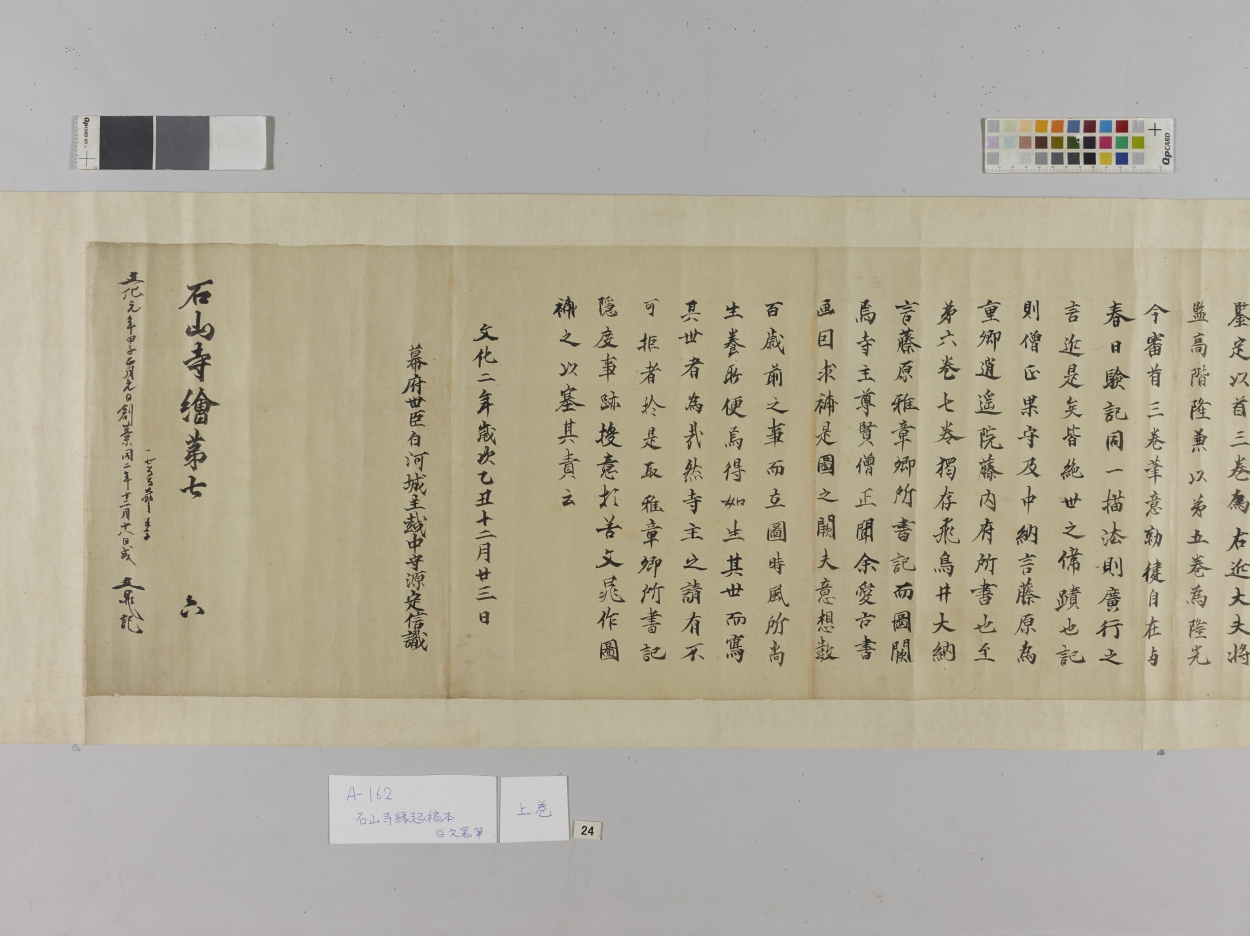 鑒定以首三巻為右近大夫将
監高階隆兼以第五巻為隆光
今審首三巻筆意勁健自在与
春日験記同一描法則廣行之
言近是矣皆絶世之偉蹟也記
則僧正果守及中納言藤原為
重卿逍遥院藤内府所書也至
第六巻七巻獨存飛鳥井大納
言藤原雅章卿所書記而圖闕
焉寺主尊賢僧正聞余愛古書
画因求補是圖之闕夫意想数
百歳前之事而立圖時風所尚
生養所便焉得如生其世而寫
其世者為哉然寺主之請有不
可拒者於是取雅章卿所書記
隠度事跡授意於善文晁作圖
補之以塞其責云
文化二年歳次乙丑十二月廿三日
幕府世臣白河城主越中守源定信識
石山寺繪第七 六
文化元年甲子正月元日創業同二年十二月十八日成 文晁記
A-162
石山寺縁起稿本
谷文晁筆
上巻
24
QPCARD
QPCARD